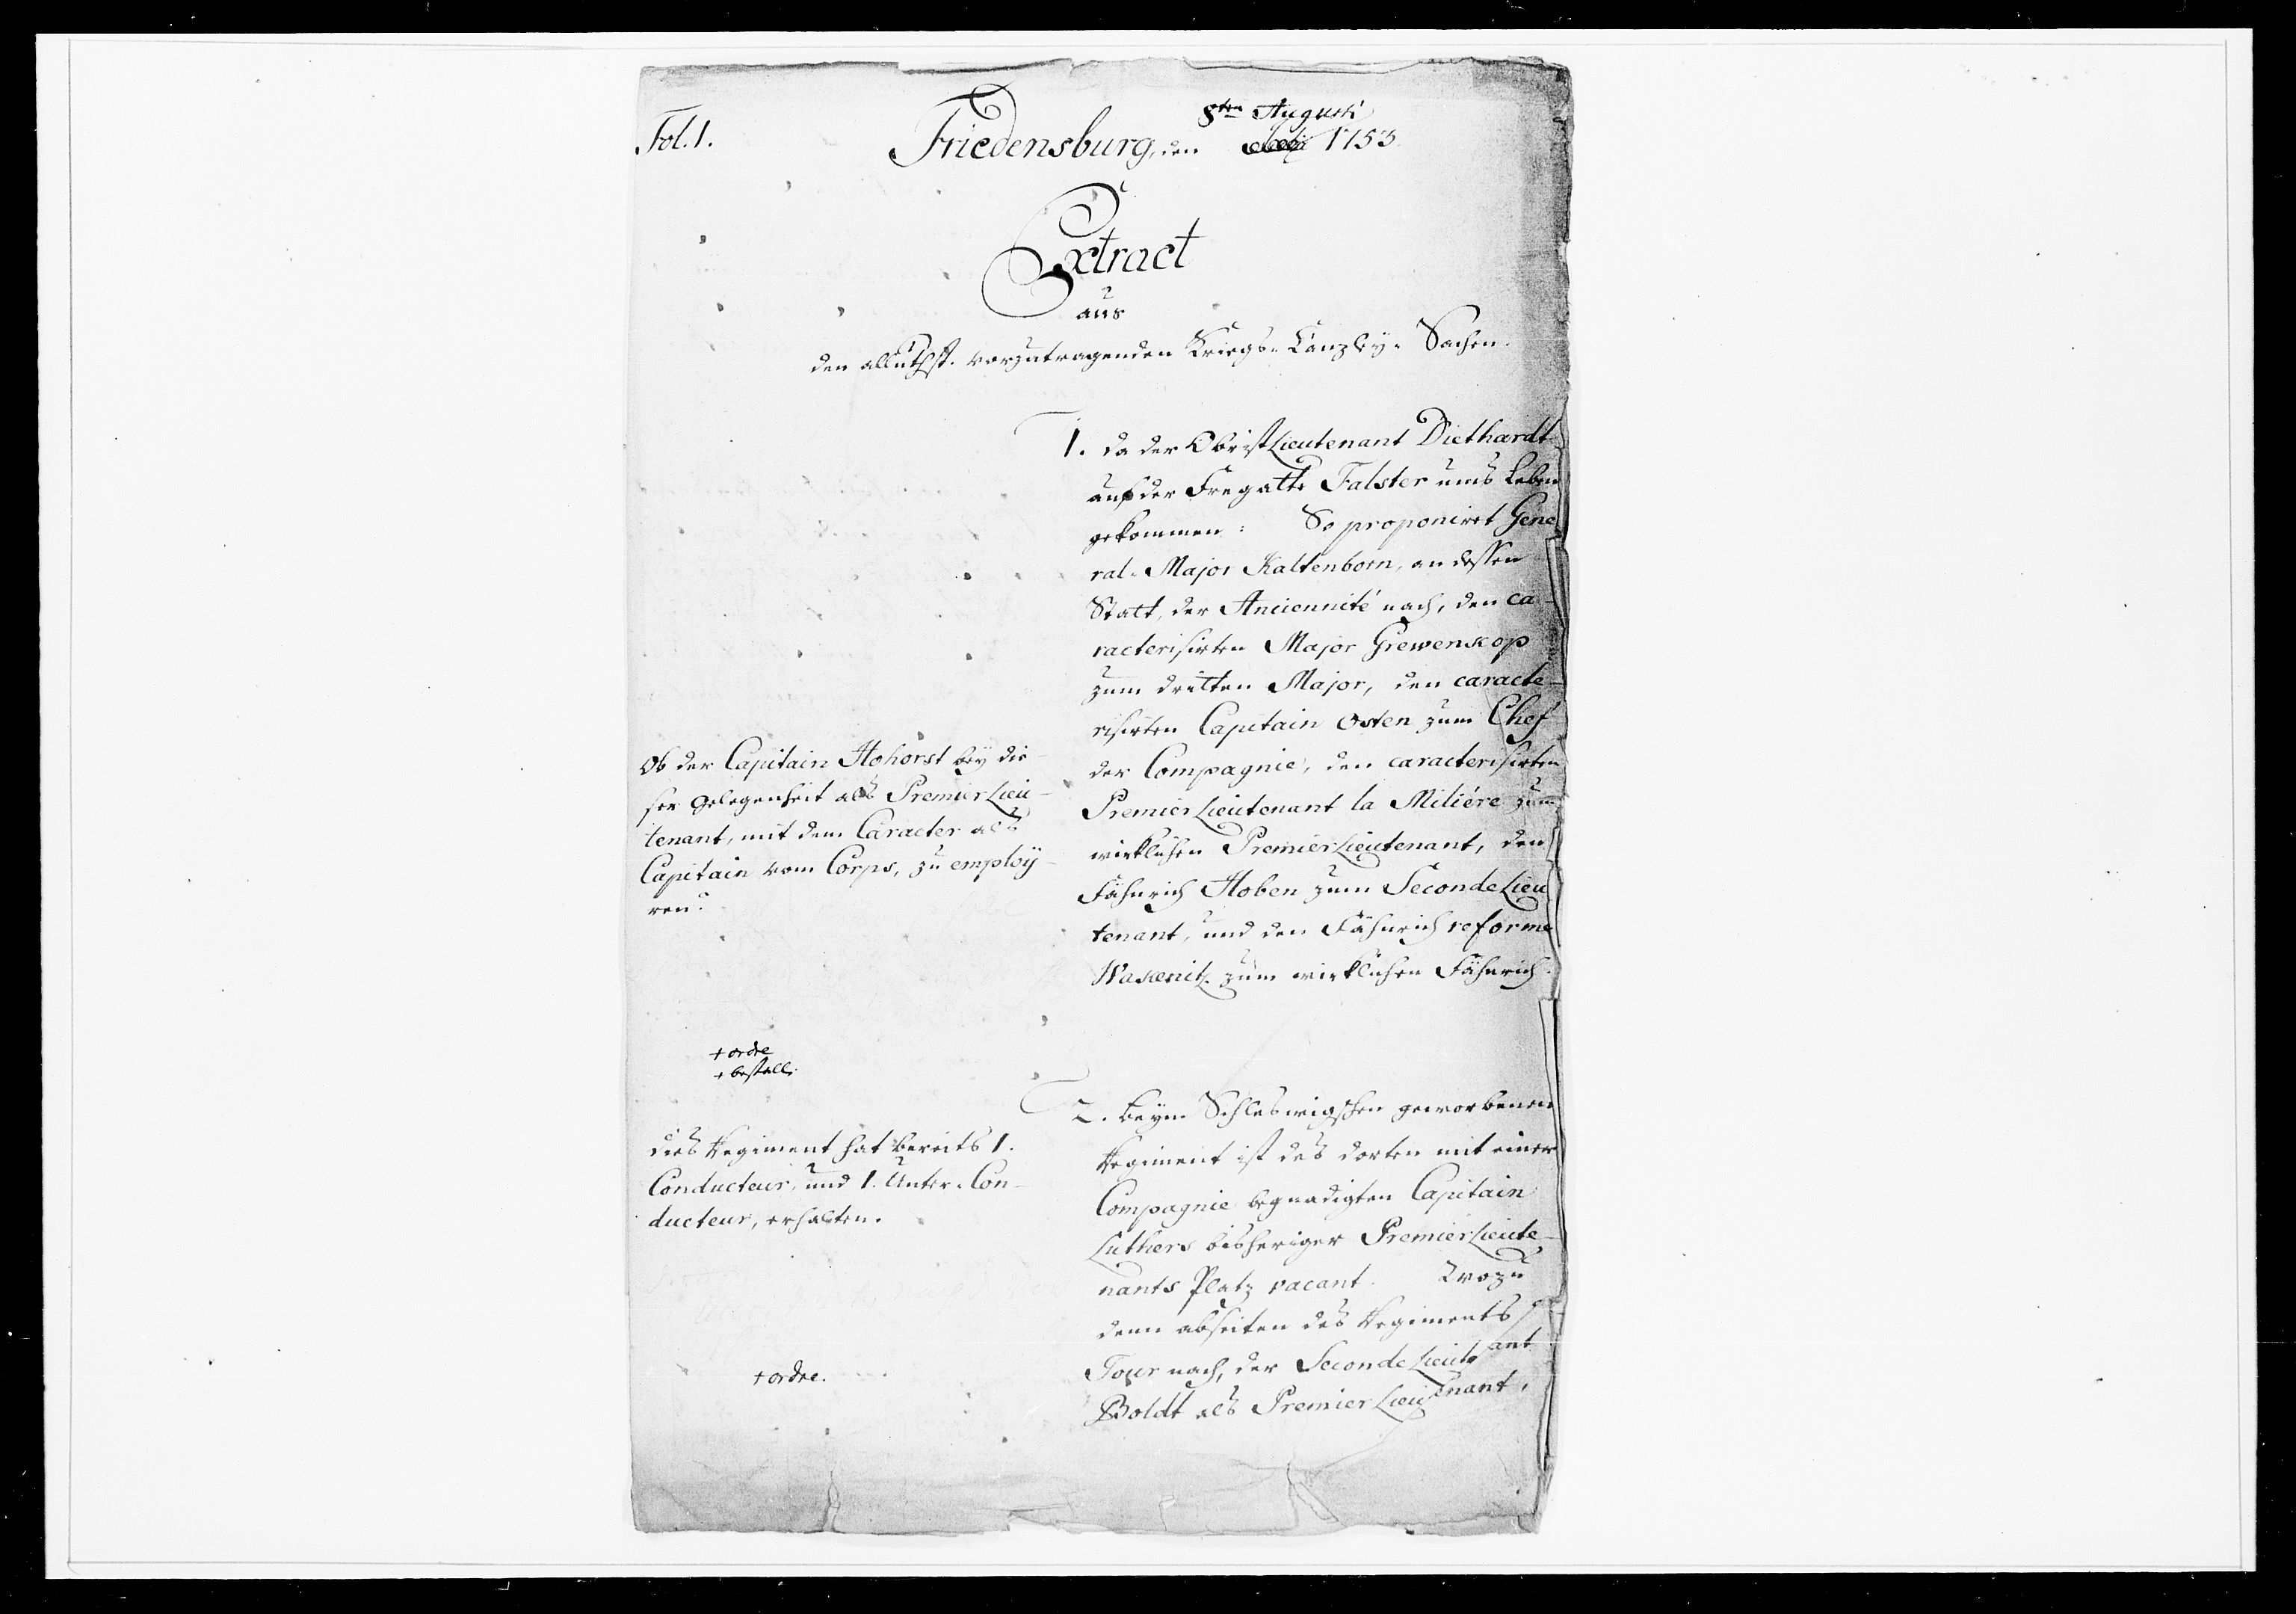 Fol. 1.
8ten Augusti
Friedensburg, den 1753
Extract
aus
den alluthst. vorzutragenden Kriegs-Canzley-Sachen.
1. Da der ObristLieutenant Diethardt
auf der Fregatte Falster ums Leben
gekommen: So proponiret Gene
ral-Major Kaltenborn, an dessen
Statt, der Anciennité nach, den ca-
racterisirten Major Grewenkop
zum dritten Major, den caracte-
risirten Capitain Osten zum Chef
der Compagnie, den caracterisirten
PremierLieutenant la Miliére zum
wirklichen PremierLieutenant, den
Fähnrich Hoben zum SecondeLieu
tenant, und den Fähnrich reforme
Wakenitz zum wirklichen Fähnrich.
Ob der Capitain Hohorst bey die-
ser Gelegenheit als PremierLieu-
tenant, mit dem Caracter als
Capitain vom Corps, zu employ-
ren?
+ ordre
+ bestall.
2. Beym Schleswigschen geworbenen
Regiment ist des dorten mit einer
Compagnie begnadigten Capitain
Luthers bisheriger PremierLieute-
nants Platz vacant. Wozu
denn abseiten des Regiments
Tour nach, der SecondeLieutenant
Boldt als PremierLieutenant,
Dies Regiment hat bereits 1.
Conducteur, und 1. Unter-Con-
ducteur, erhalten.
+ ordre.